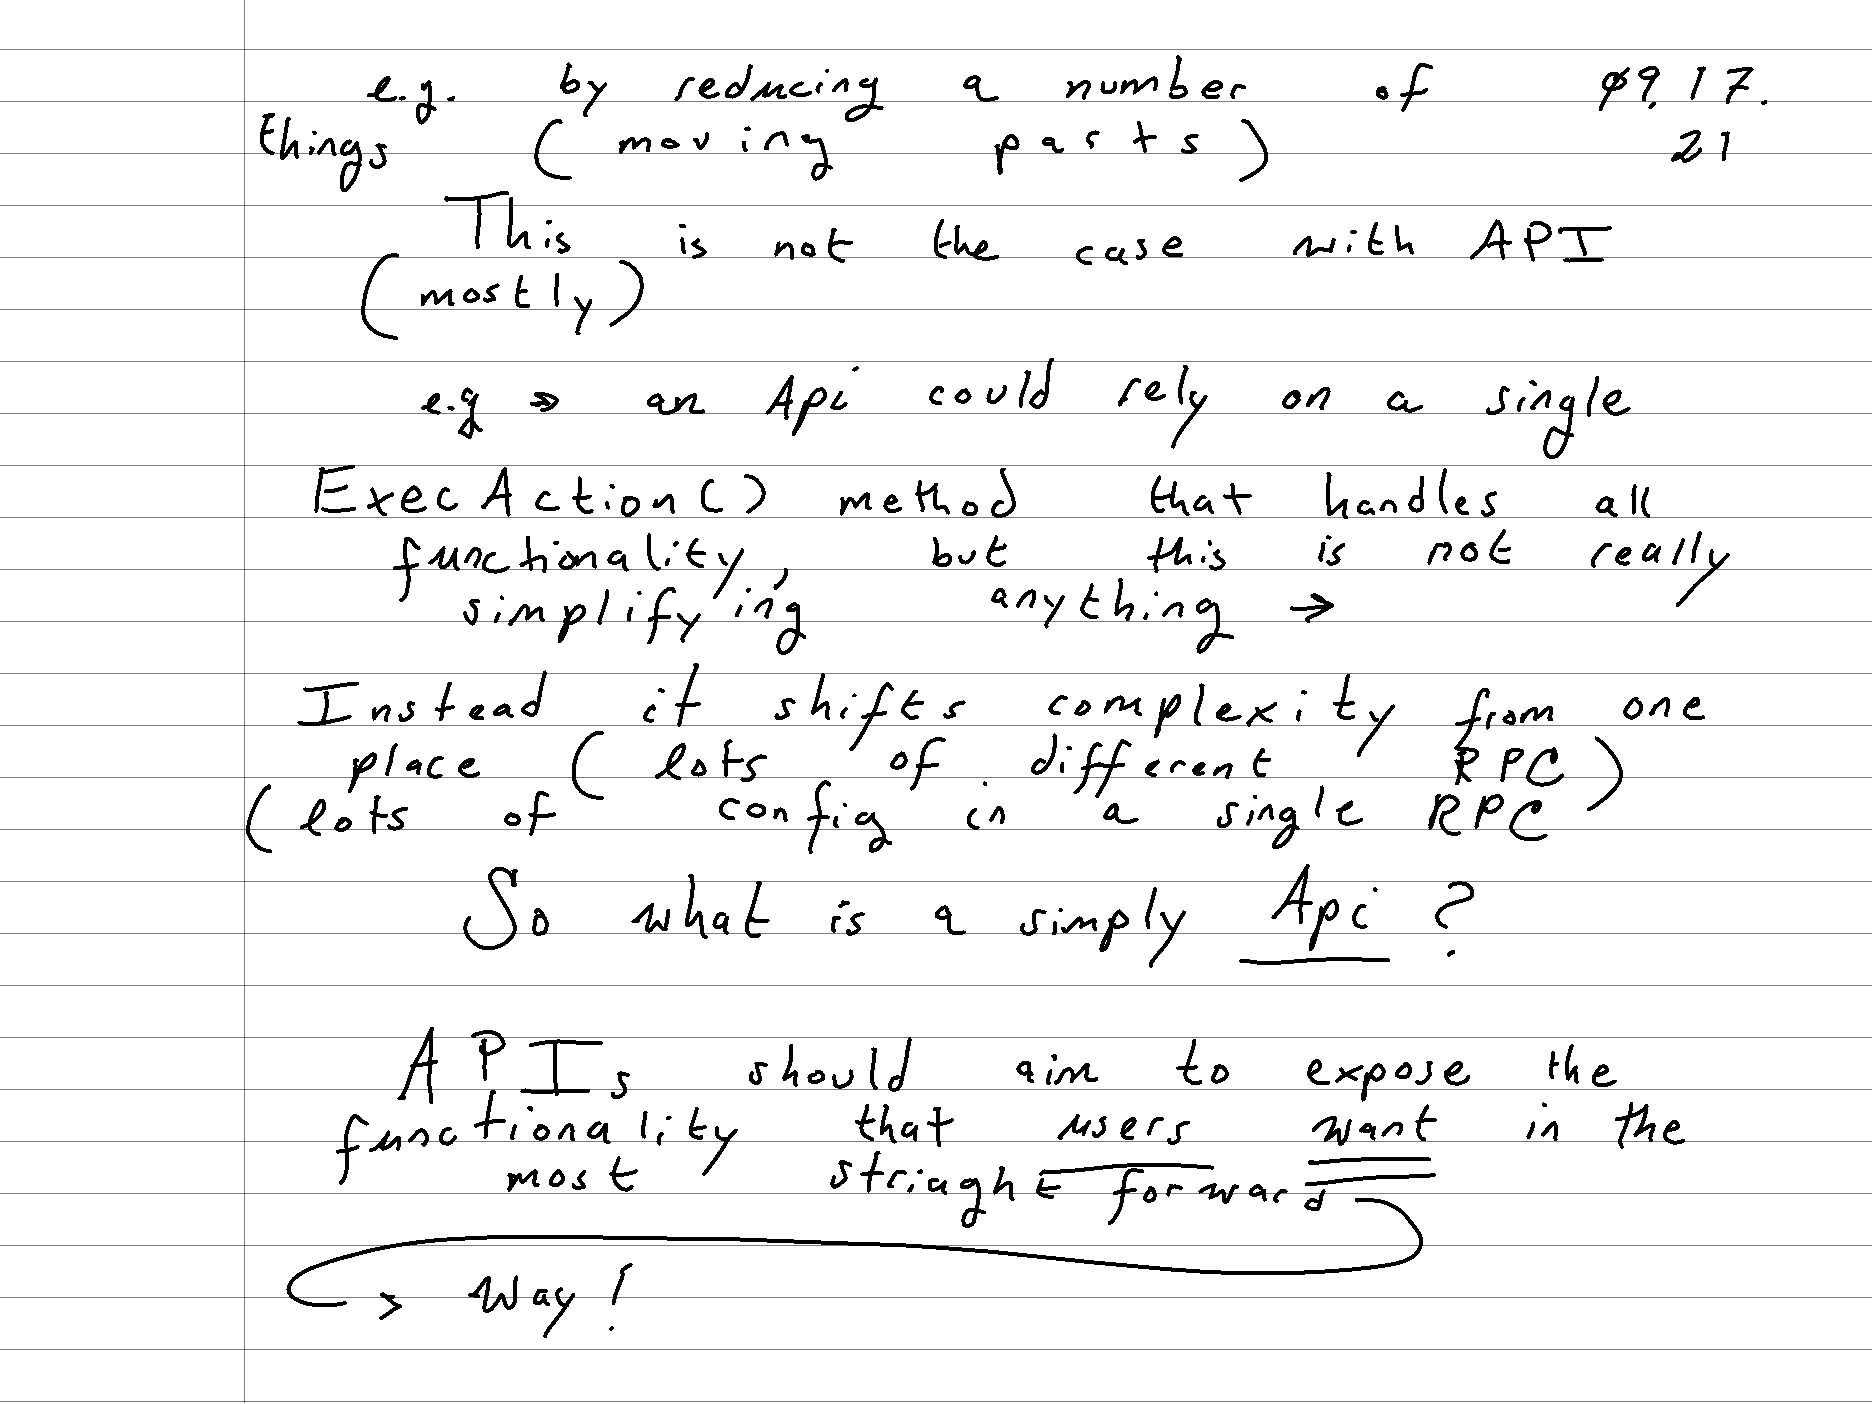 e.g. by reducing a number of ø9.17.
things (moving parts) 21
This is not the case with API
(mostly)
e.g => an Api could rely on a single
ExecAction() method that handles all
functionality, but this is not really
simplify'ing anything →
Instead it shifts complexity from one
place (lots of different RPC)
(lots of config in a single RPC
So what is a simply Api ?
APIs should aim to expose the
functionality that users want in the
most striaght forward
> Way!